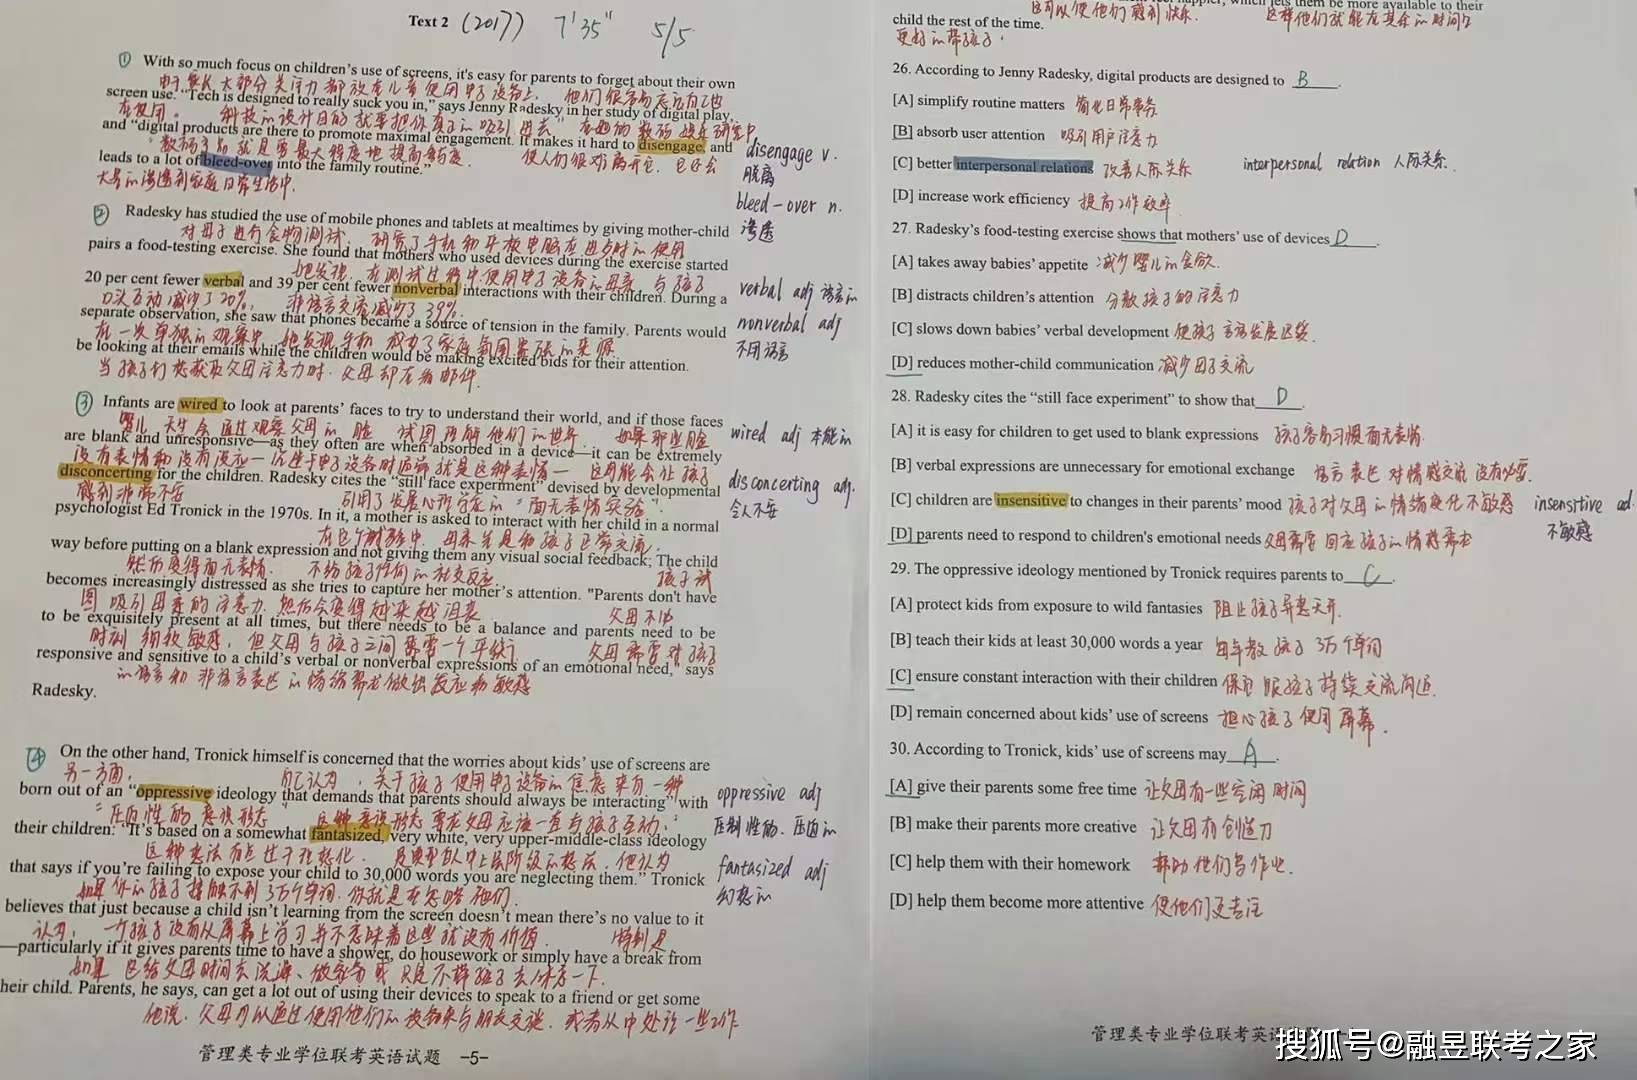 Text 2 (2017) 7'35" 5/5
① With so much focus on children's use of screens, it's easy for parents to forget about their own
screen use. "Tech is designed to really suck you in," says Jenny Radesky in her study of digital play,
and "digital products are there to promote maximal engagement. It makes it hard to disengage, and
leads to a lot of bleed-over into the family routine."
disengage v.
脱离
bleed-over n.
渗透
② Radesky has studied the use of mobile phones and tablets at mealtimes by giving mother-child
对母子进行食物测试 研究了手机和平板电脑在进步时的使用
pairs a food-testing exercise. She found that mothers who used devices during the exercise started
20 per cent fewer verbal and 39 per cent fewer nonverbal interactions with their children. During a
口头互动减少了20%, 非语言交流减少了39%.
separate observation, she saw that phones became a source of tension in the family. Parents would
be looking at their emails while the children would be making excited bids for their attention.
当孩子们想获取父母注意力时, 父母却在看邮件.
verbal adj 语言的
nonverbal adj
不用语言
③ Infants are wired to look at parents' faces to try to understand their world, and if those faces
婴儿 天生会通过观察父母的脸 试图理解他们的世界, 如果那些脸
are blank and unresponsive—as they often are when absorbed in a device—it can be extremely
disconcerting for the children. Radesky cites the "still face experiment" devised by developmental
感到非常不安 引用了发展心理学家的"面无表情实验".
psychologist Ed Tronick in the 1970s. In it, a mother is asked to interact with her child in a normal
在这个试验中, 母亲先是和孩子正常交流.
way before putting on a blank expression and not giving them any visual social feedback; The child
然后变得面无表情. 不给孩子任何的社交反应. 孩子试
becomes increasingly distressed as she tries to capture her mother's attention. "Parents don't have
图吸引母亲的注意力, 然后会变得越来越沮丧. 父母不必
to be exquisitely present at all times, but there needs to be a balance and parents need to be
responsive and sensitive to a child's verbal or nonverbal expressions of an emotional need," says
的语言和非语言表达的情绪需求做出反应和敏感
Radesky.
wired adj 本能的
disconcerting adj.
令人不安
④ On the other hand, Tronick himself is concerned that the worries about kids' use of screens are
另一方面, 自己认为, 关于孩子使用电子设备的焦虑来自一种
born out of an "oppressive ideology that demands that parents should always be interacting" with
"压迫性的意识形态" 这种意识形态要求父母应该一直与孩子互动.
their children: "It's based on a somewhat fantasized, very white, very upper-middle-class ideology
that says if you're failing to expose your child to 30,000 words you are neglecting them." Tronick
如果你的孩子接触不到3万个单词, 你就是在忽略他们.
believes that just because a child isn't learning from the screen doesn't mean there's no value to it
认为, 一个孩子没有从屏幕上学习并不意味着这些就没有价值. 特别是
—particularly if it gives parents time to have a shower, do housework or simply have a break from
如果 它给父母时间去洗澡、做家务或只是不带孩子去休息一下.
heir child. Parents, he says, can get a lot out of using their devices to speak to a friend or get some
他说, 父母可以通过使用他们的设备来与朋友交谈, 或者从中处理一些工作
oppressive adj
压制性的, 压迫的
fantasized adj
幻想的
管理类专业学位联考英语试题 –5–
which lets them be more available to their
这可以使他们感到快乐. 这样他们就能在其余的时间
child the rest of the time.
更好的带孩子.
26. According to Jenny Radesky, digital products are designed to B.
[A] simplify routine matters 简化日常事务
[B] absorb user attention 吸引用户注意力
[C] better interpersonal relations 改善人际关系 interpersonal relation 人际关系.
[D] increase work efficiency 提高工作效率
27. Radesky's food-testing exercise shows that mothers' use of devices D.
[A] takes away babies' appetite 减少婴儿的食欲.
[B] distracts children's attention 分散孩子的注意力
[C] slows down babies' verbal development 使孩子言语发展迟缓.
[D] reduces mother-child communication 减少母子交流
28. Radesky cites the "still face experiment" to show that D.
[A] it is easy for children to get used to blank expressions 孩子容易习惯面无表情.
[B] verbal expressions are unnecessary for emotional exchange 语言表达对情感交流没有必要.
[C] children are insensitive to changes in their parents' mood 孩子对父母的情绪变化不敏感 insensitive ad.
不敏感
[D] parents need to respond to children's emotional needs 父母需要回应孩子的情感需求
29. The oppressive ideology mentioned by Tronick requires parents to C.
[A] protect kids from exposure to wild fantasies 阻止孩子异想天开.
[B] teach their kids at least 30,000 words a year 每年教孩子3万个单词
[C] ensure constant interaction with their children 保证跟孩子持续交流沟通.
[D] remain concerned about kids' use of screens 担心孩子使用屏幕.
30. According to Tronick, kids' use of screens may A.
[A] give their parents some free time 让父母有一些空闲时间
[B] make their parents more creative 让父母有创造力
[C] help them with their homework 帮助他们写作业.
[D] help them become more attentive 使他们更专注
管理类专业学位联考英语
搜狐号@融昱联考之家